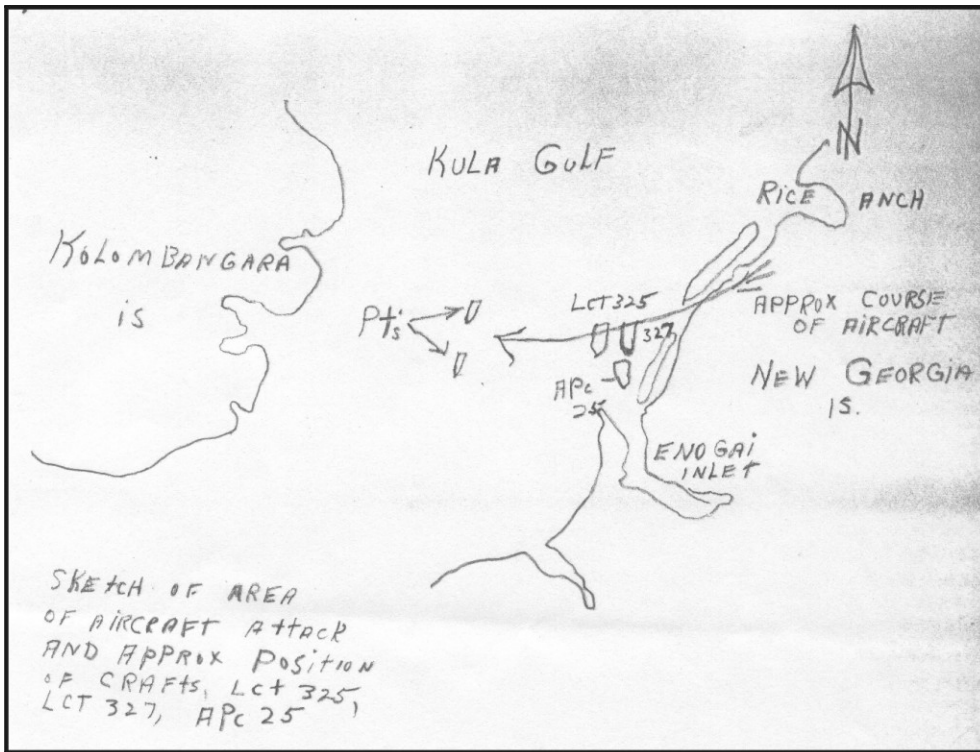 N
KULA GULF
RICE ANCH
KOLOMBANGARA
is
LCT 325
327
Pts
APPROX COURSE
OF AIRCRAFT
NEW GEORGIA
IS.
APc
25
ENOGAI
INLET
SKEtCH OF AREA
OF AIRCRAFT AttACK
AND APPROX POSITION
OF CRAFts, LCt 325,
LCT 327, APc 25